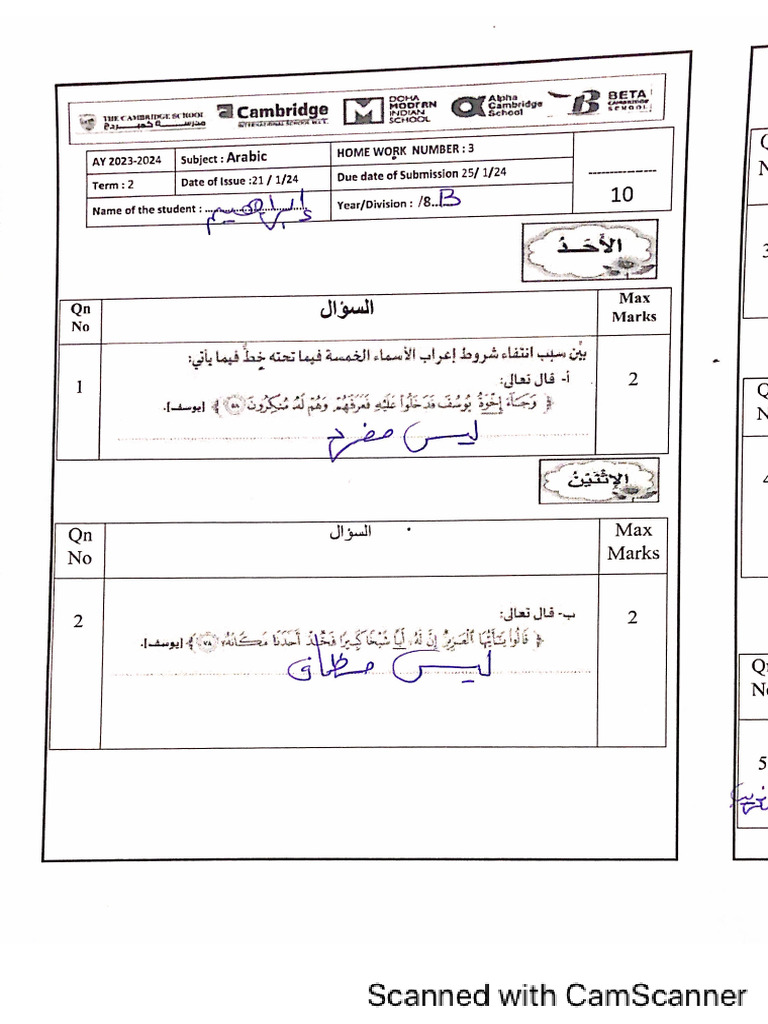 THE CAMBRIDGE SCHOOL
مدرسة كمبردج
Cambridge
INTERNATIONAL SCHOOL W.L.L.
DOHA
MODERN
INDIAN
SCHOOL
Alpha
Cambridge
School
BETA
CAMBRIDGE
SCHOOL
AY 2023-2024 Subject : Arabic HOME WORK NUMBER : 3
Term : 2 Date of Issue :21 / 1/24 Due date of Submission 25/ 1/24
Name of the student : إبراهيم Year/Division : /8..B
10
الأَحَدُ
Qn No السؤال Max Marks
1 بيِّن سبب انتفاء شروط إعراب الأسماء الخمسة فيما تحته خطٌّ فيما يأتي: 2
أ- قال تعالى:
﴿ وَجَاءَ إِخْوَةُ يُوسُفَ فَدَخَلُوا عَلَيْهِ فَعَرَفَهُمْ وَهُمْ لَهُ مُنكِرُونَ ٥٨ ﴾ [يوسف].
ليس مفرح
الاِثْنَيْنُ
Qn No السؤال Max Marks
2 ب- قال تعالى: 2
﴿ قَالُوا يَٰٓأَيُّهَا الْعَزِيزُ إِنَّ لَهُۥٓ أَبًا شَيْخًا كَبِيرًا فَخُذْ أَحَدَنَا مَكَانَهُۥٓ ٧٨ ﴾ [يوسف].
ليس مظاف
5
Scanned with CamScanner